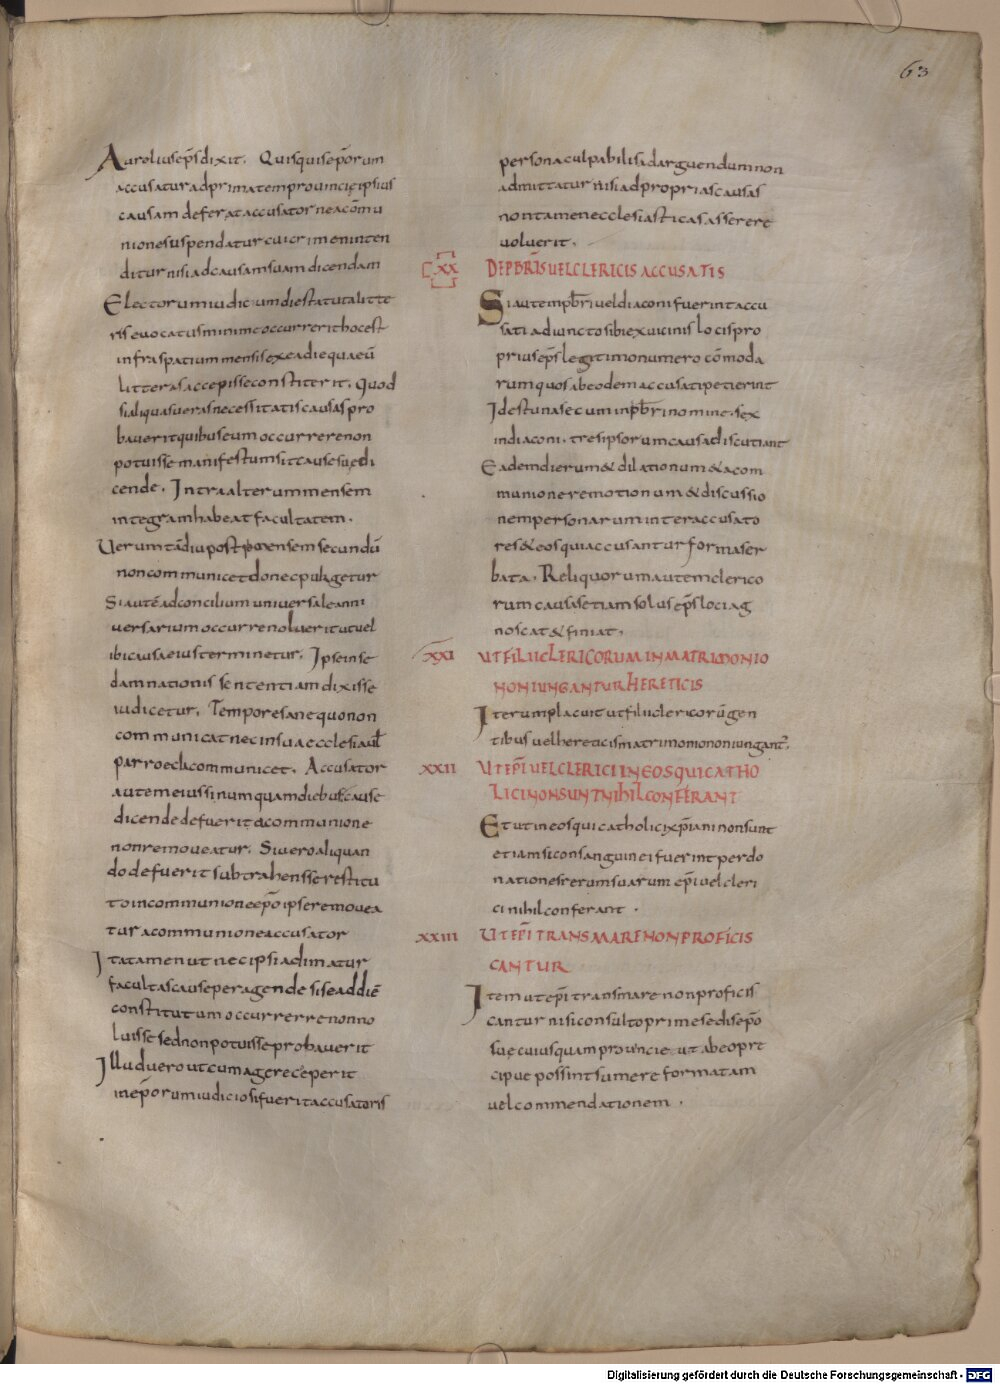 63
Aurelius ep̄s dixit. Quisquis ep̄orum
accusatur ad primatem prouincię ipsius
causam deferat accusator ne a cōmu
nione suspendatur cui crimen inten
ditur nisi ad causam suam dicendam
Electorum iudicum die statuta litte
ris euocatus minime occurrerit hoc est
infra spatium mensis ex ea die qua eū
litteras accepisse constiterit. Quod
si aliquas ueras necessitatis causas pro
bauerit quibus eum occurrere non
potuisse manifestum sit cause suę di
cende. Intra alterum mensem
integram habeat facultatem.
Uerum tādiu post mensem secundū
non communicet donec purgetur
Si autē ad concilium uniuersale anni
uersarium occurre noluerit ut uel
ibi causa eius terminetur. Ipse in se
damnationis sententiam dixisse
iudicetur. Tempore sane quo non
communicat nec in sua ecclesia uł
parroechia communicet. Accusator
autem eius si numquam diebus cause
dicende defuerit a communione
non remoueatur. Si uero aliquan
do defuerit subtrahens se restitu
to in communione ep̄o ipse remouea
tur a communione accusator
Ita tamen ut nec ipsi adimatur
facultas cause peragende si se ad diē
constitutum occurrerre non no
luisse sed non potuisse probauerit
Illud uero ut cum agere ceperit
in ep̄orum iudicio si fuerit accusatoris
persona culpabilis ad arguendum non
admittatur nisi ad proprias causas
non tamen ecclesiasticas asserere
uoluerit.
XX DE PB̄RIS UEL CLERICIS ACCUSATIS
Si autem pb̄ri uel diaconi fuerint accu
sati adiuncto sibi ex uicinis locis pro
prius ep̄s legitimo numero cōmoda
rum quos ab eodem accusati petierint
Id est una secum in pb̄ri nomine. sex
in diaconi. tres ipsorum causa discutiant
Eadem dierum & dilationum & a com
munione remotionum & discussio
nem personarum inter accusato
res & eos qui accusantur forma ser
bata. Reliquorum autem clerico
rum causas etiam solus ep̄s loci ag
noscat & finiat.
XXI UT FILII CLERICORUM IN MATRIMONIO
NON IUNGANTUR HERETICIS
Iterum placuit ut filii clericorū gen
tibus uel hereticis matrimonio non iungant̄.
XXII UT EP̄I UEL CLERICI IN EOS QUI CATHO
LICI NON SUNT NIHIL CONFERANT
Et ut in eos qui catholici xp̄iani non sunt
etiam si consanguinei fuerint per do
nationes rerum suarum ep̄i uel cleri
ci nihil conferant.
XXIII UT EP̄I TRANS MARE NON PROFICIS
CANTUR
Item ut ep̄i trans mare non proficis
cantur nisi consulto prime sedis ep̄o
sue cuiusquam prouncie. ut ab eo pre
cipue possint sumere formatam
uel commendationem.
Digitalisierung gefördert durch die Deutsche Forschungsgemeinschaft - DFG